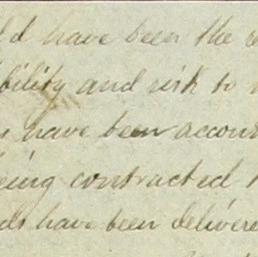 ld have been the
bility and risk to
have been accoun
eing contracted
ds have been delivere